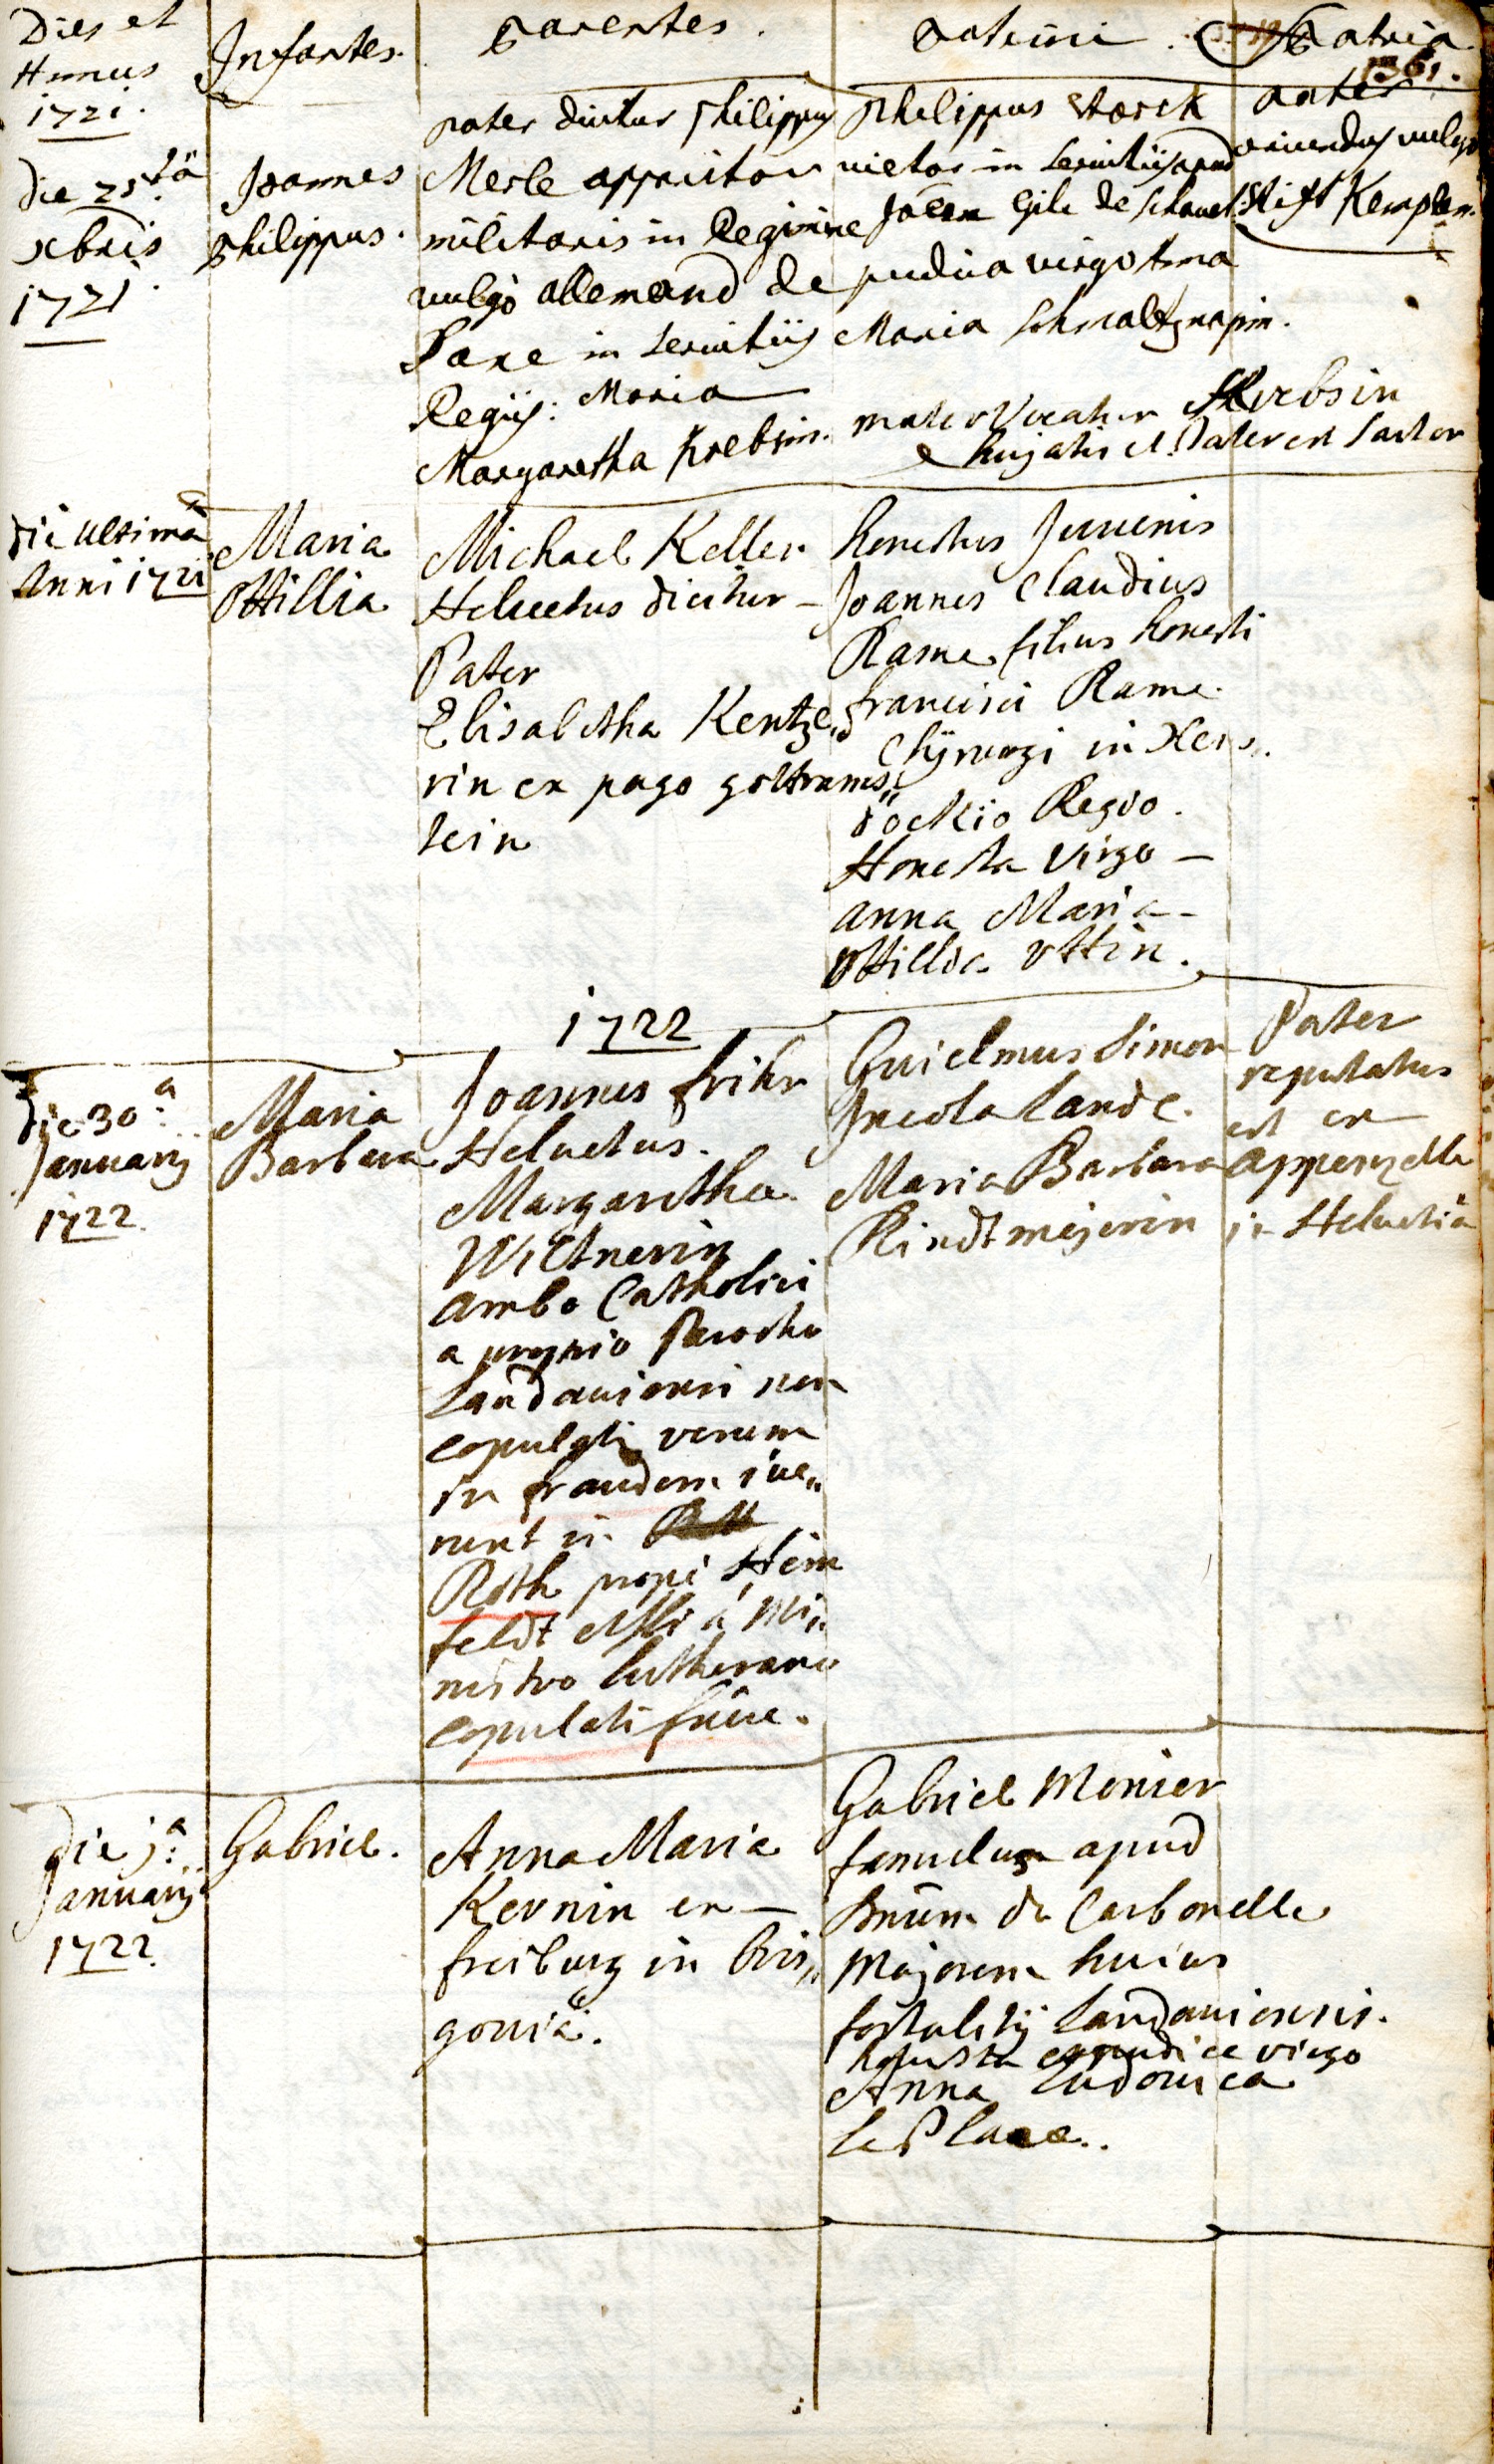 Dies et
Annus
1721.
Infantes.
Parentes.
Patrini.
Patria
1361.
die 25tâ
xbris
1721.
Joannes
Philippus.
pater dicitur Philippus
Merle apparitor
militaris in Regimine
vulgo allemand de
Saxe in servitiis
Regiis: Maria
Margaretha Krebsin.
Philippus Storck
vietor in servitiis apud
Joēm Gili de
pudica virgo Anna
Maria Schmaltznapin.
mater vocatur Krebsin
hujatis et Pater est Sartor
pater
oriundus vulgo
Stift Kempten.
die ultimâ
Anni 1721
Maria
Ottillia
Michael Keller
Helvetus dicitur –
Pater
Elisabetha Kentze„
rin ex pago gottrams„
tein
honestus Juvenis
Joannes Claudius
Rame filius honesti
francisci Rame
Chyrurgi in Xens„
döchio Regio.
Honesta Virgo –
Anna Maria –
Ottillia Ottin.
1722
die 30.a
January
1722.
Maria
Barbara
Joannes frihr
Helvetus.
Margaretha
Wittnerin
ambo Catholici
a proprio Parocho
Landaviensi non
copulati verum
in fraudem iue„
runt in
Roth prope Hein
feldt
nistro lutherano
copulati
Guielmus Simon
Incola Landc.
Maria Barbara
Rindtmejerin
Pater
reputatus
est ex
Appenzelle
in Helvetiâ
die j.a
January
1722.
Gabriel.
Anna Maria
Kernin ex –
freiburg in Bris„
goviâ.
Gabriel Monier
famulus apud
Dnūm de Carbonelle
Majorem huius
fortalitij Landaviensis.
honesta et pudica virgo
Anna Ludovica
la Place..